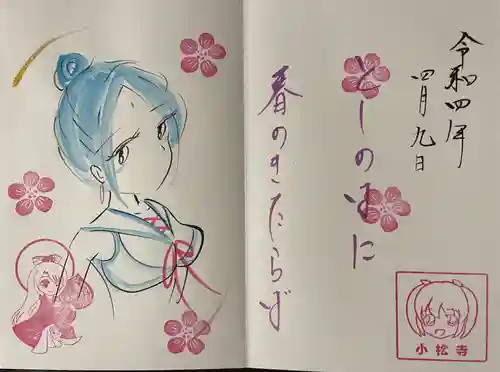 令和四年
四月九日
としの内に
春のきたらず
小松寺